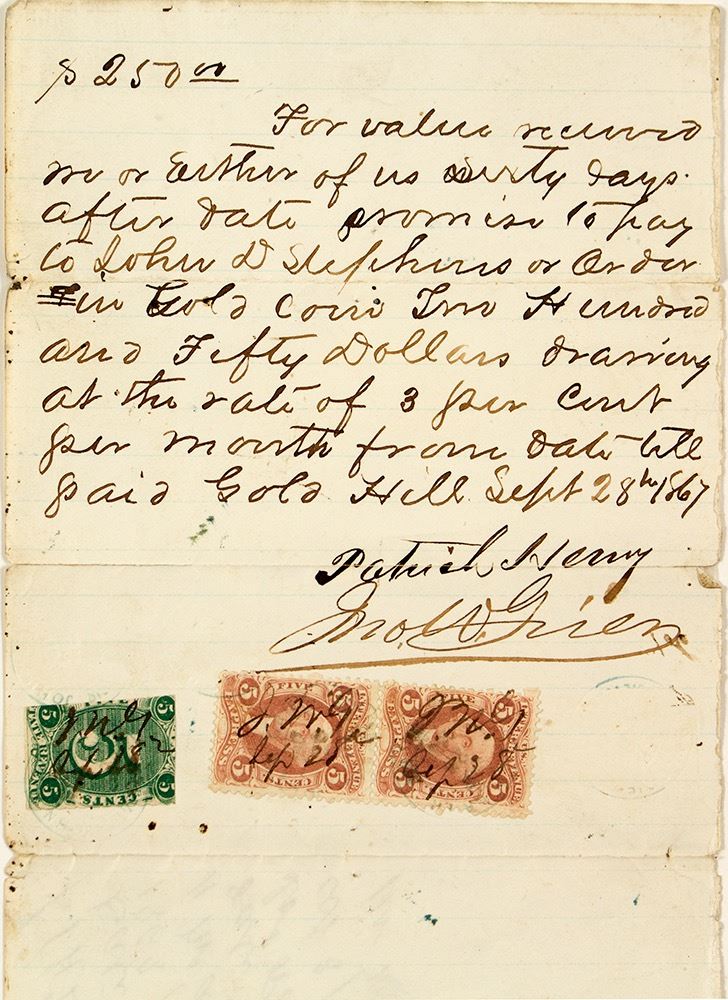 $250 00
For value received
we or Either of us sixty days
after date promise to pay
to John D Stephens or Order
in Gold Coin Two Hundred
and Fifty Dollars drawing
at the rate of 3 per Cent
per month from date till
paid Gold Hill Sept 28th 1867
Patrick Henry
Jno. W. Grier
5 5
CENTS.
5 5
5 FIVE 5
EXPRESS
5 CENTS 5
5 FIVE 5
EXPRESS
5 CENTS 5
J. W. G
Sep 28
J. W. G
Sep 28